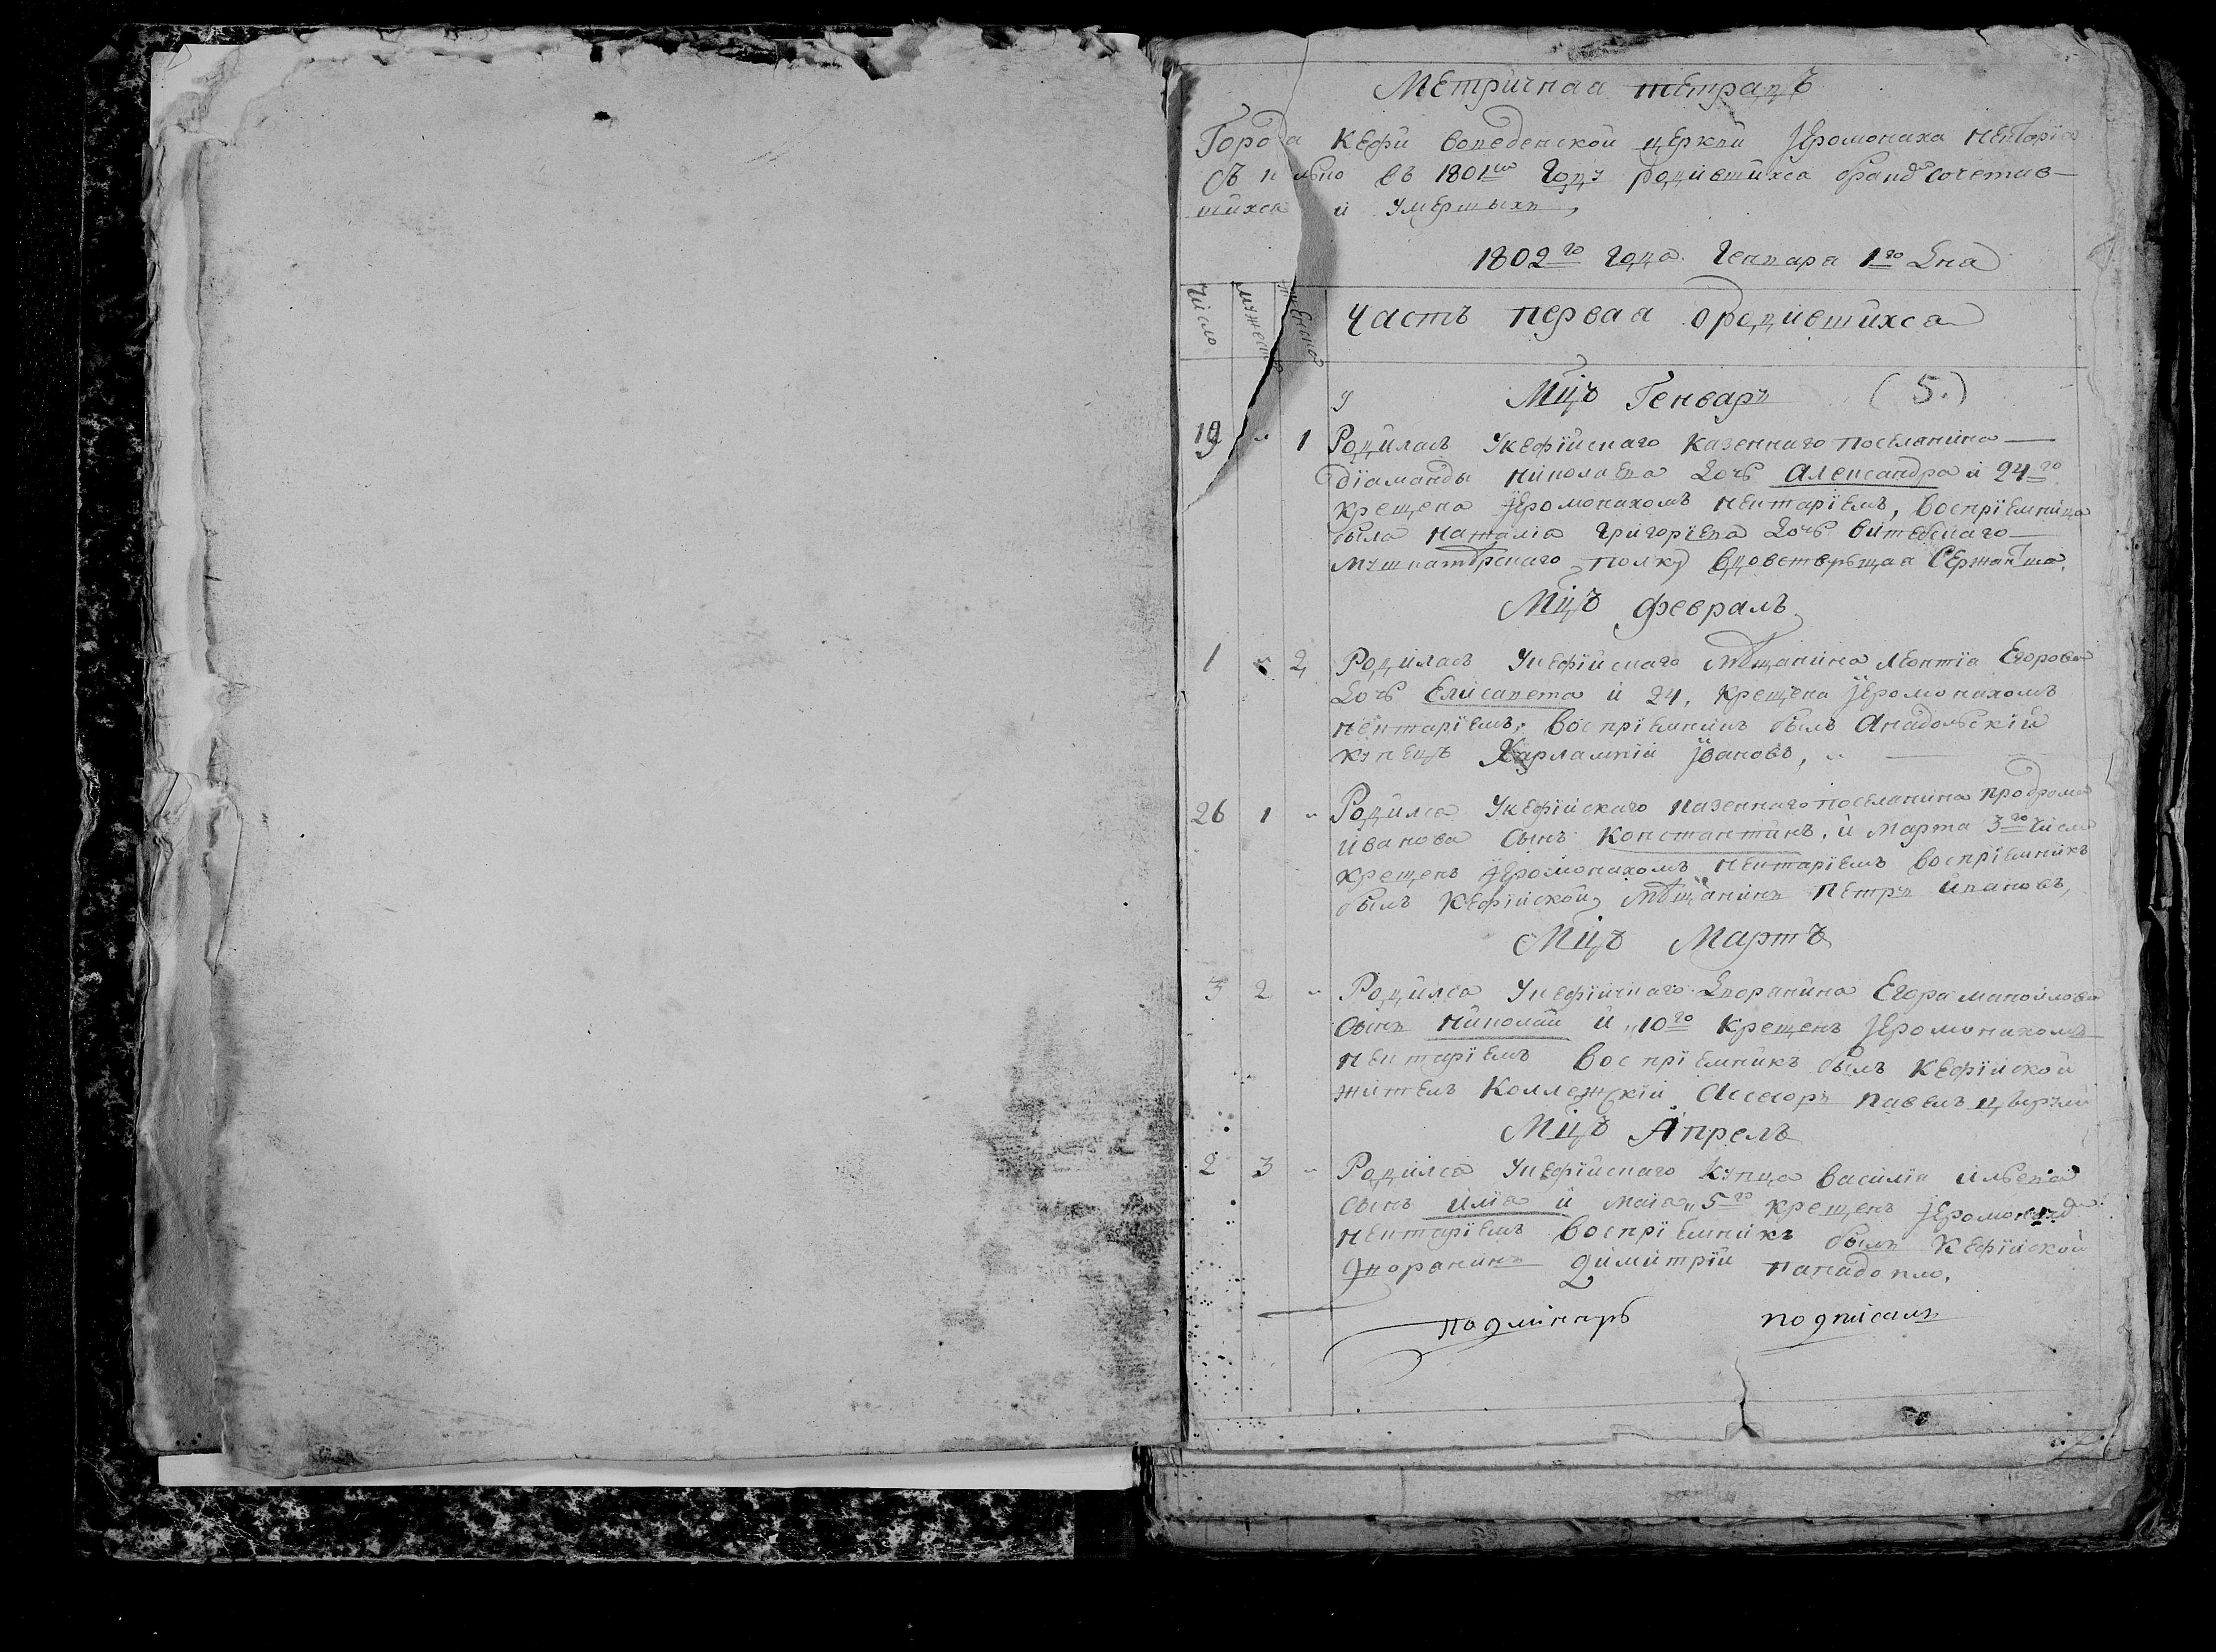 Метричная тетрадъ
Города Кефи воведенской церкви Іеромонаха Нектаріа
въ 1801мъ Году родившихса бракосочетав-
шихса и умершыхъ,
1802го года Генваря 1го дна
Число мужеск женска
Часть перваа ородившихса
Мцъ Генварь (5.)
19 " 1 Родилась Укефійскаго казеннаго поселанина
Діаманды Николаева дочь Александра и 24го
крещена Іеромонахомъ Нектаріемъ, воспріемница
была Наталіа Григоріева дочь витебскаго
мушкатѣрскаго полку вдовствующаа Сержантша.
Мцъ февраль
1 " 2 Родилась Укефійскаго мѣщанина Леонтіа Егорова
дочь Елисавета и 24, крещена Іеромонахомъ
Нектаріемъ, воспріемникъ былъ Анадольскій
купецъ Харлампій Івановъ, "
26 1 " Родилса Укефійскаго казеннаго поселанина продрома
Иванова сынъ Константинъ, и марта 3го числа
крещенъ Іеромонахомъ Нектаріемъ воспріемникъ
былъ Кефійской мѣщанинъ Петръ Ивановъ,
Мцъ Мартъ
3 2 " Родилса Укефійскаго дворанина Егора манойлова
сынъ Николай и "10го крещенъ Іеромонахомъ
Нектаріемъ воспріемникъ былъ Кефійской
житель Коллежскій Ассесоръ Павелъ
Мцъ Апрель
2 3 " Родилса Укефійскаго купца Василіа ильева
сынъ Иліа и маіа "5го крещенъ
Нектаріемъ воспріемникъ былъ Кефійской
дворанинъ Димитрій Пападопло.
подписалъ